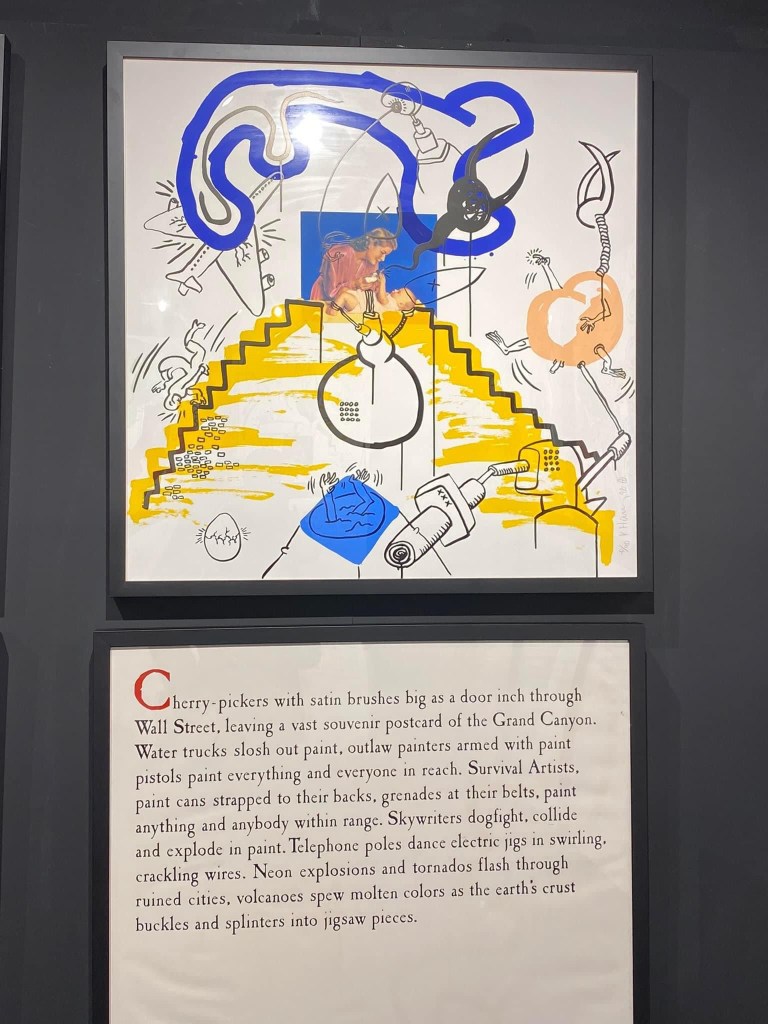 Cherry-pickers with satin brushes big as a door inch through
Wall Street, leaving a vast souvenir postcard of the Grand Canyon.
Water trucks slosh out paint, outlaw painters armed with paint
pistols paint everything and everyone in reach. Survival Artists,
paint cans strapped to their backs, grenades at their belts, paint
anything and anybody within range. Skywriters dogfight, collide
and explode in paint. Telephone poles dance electric jigs in swirling,
crackling wires. Neon explosions and tornados flash through
ruined cities, volcanoes spew molten colors as the earth's crust
buckles and splinters into jigsaw pieces.